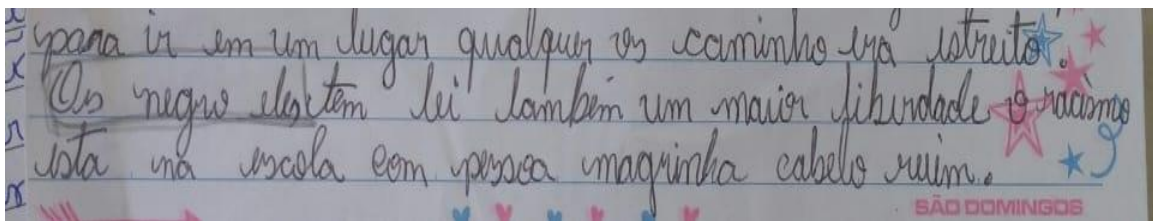 para ir em um lugar qualquer os caminho era istreito.
Os negro eles tem lei também um maior liberdade o racismo
ista na escola com pessoa magrinha cabelo ruim.
SÃO DOMINGOS